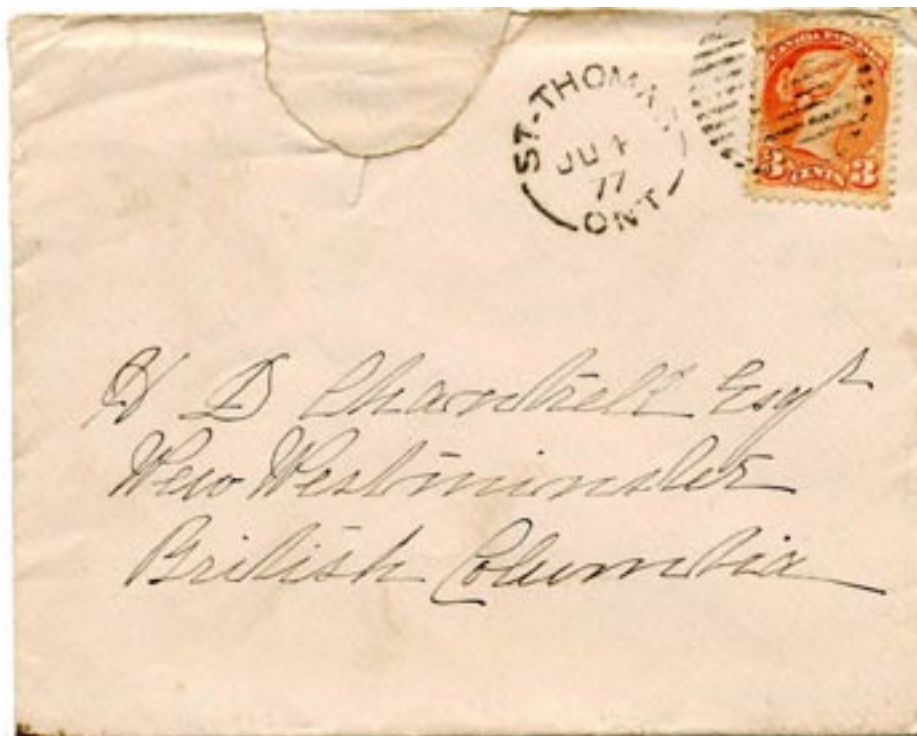 ST-THOMAS
JU 4
77
ONT
CANADA POSTAGE
3 CENTS 3
H D Chantrell Esqr
New Westminster
British Columbia